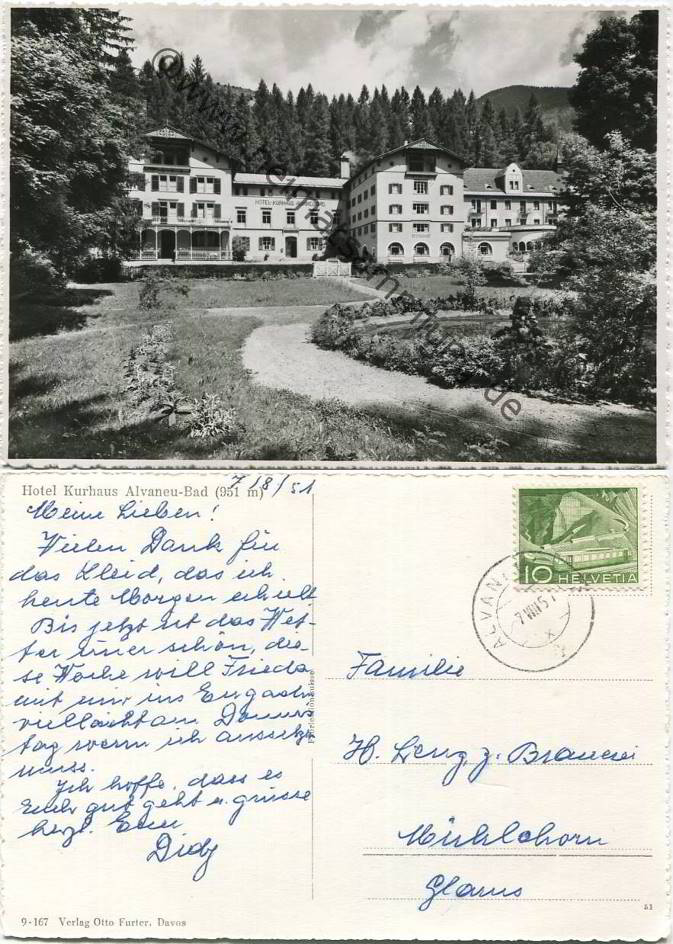 HOTEL-KURHAUS
©www.heimatsammlung.de
Hotel Kurhaus Alvaneu-Bad (951 m)
7/8/51
Meine Lieben!
Vielen Dank für
das Kleid, das ich
heute Morgen erhielt
Bis jetzt ist das Wet-
ter immer schön, die-
se Woche will Frieda
mit mir ins Engadin
vielleicht am Donners
tag wenn ich aussetzen
muss.
Ich hoffe, dass es
Euch gut geht u. grüsse
herzl. Euer
Didy
9-167 Verlag Otto Furter, Davos
10 HELVETIA
ALVANEU
7 VIII 51
Familie
H. z. Brauerei
Mühlehorn
Glarus
51